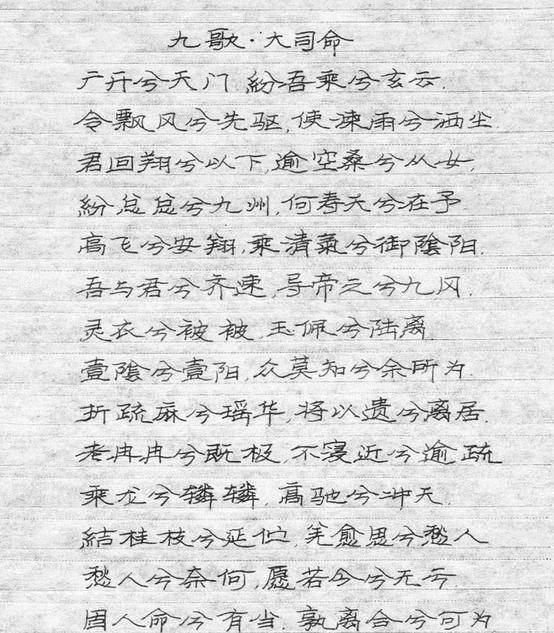 九歌·大司命
广开兮天门,紛吾乘兮玄云.
令飘风兮先驱,使涷雨兮洒尘.
君回翔兮以下,逾空桑兮从女,
紛总总兮九州,何寿夭兮在予
高飞兮安翔,乘清氣兮御陰阳.
吾与君兮齐速,导帝之兮九冈.
灵衣兮被被,玉佩兮陆离
壹陰兮壹阳,众莫知兮余所为.
折疏麻兮瑶华,将以遗兮离居.
老冉冉兮既极,不寝近兮逾疏
乘龙兮辚辚,高驰兮冲天.
結桂枝兮延伫,羌愈思兮愁人
愁人兮奈何,愿若今兮无亏
固人命兮有当,孰离合兮可为